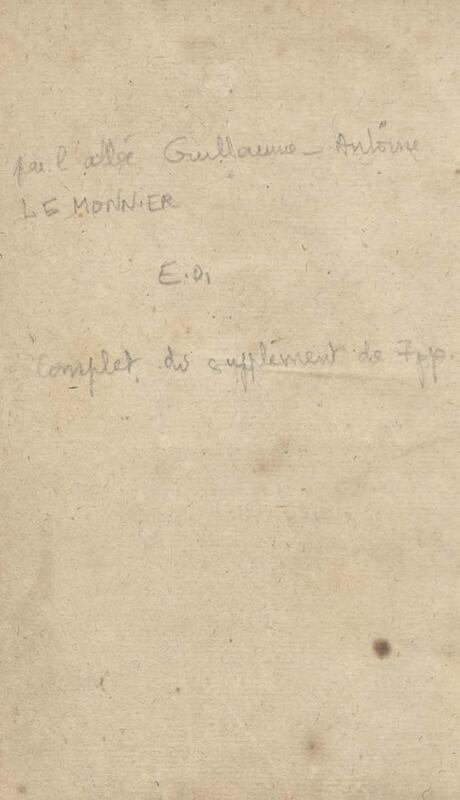 par l'abbé Guillaume-Antoine
LE MONNIER
E.O,
Complet du supplément de 7pp.